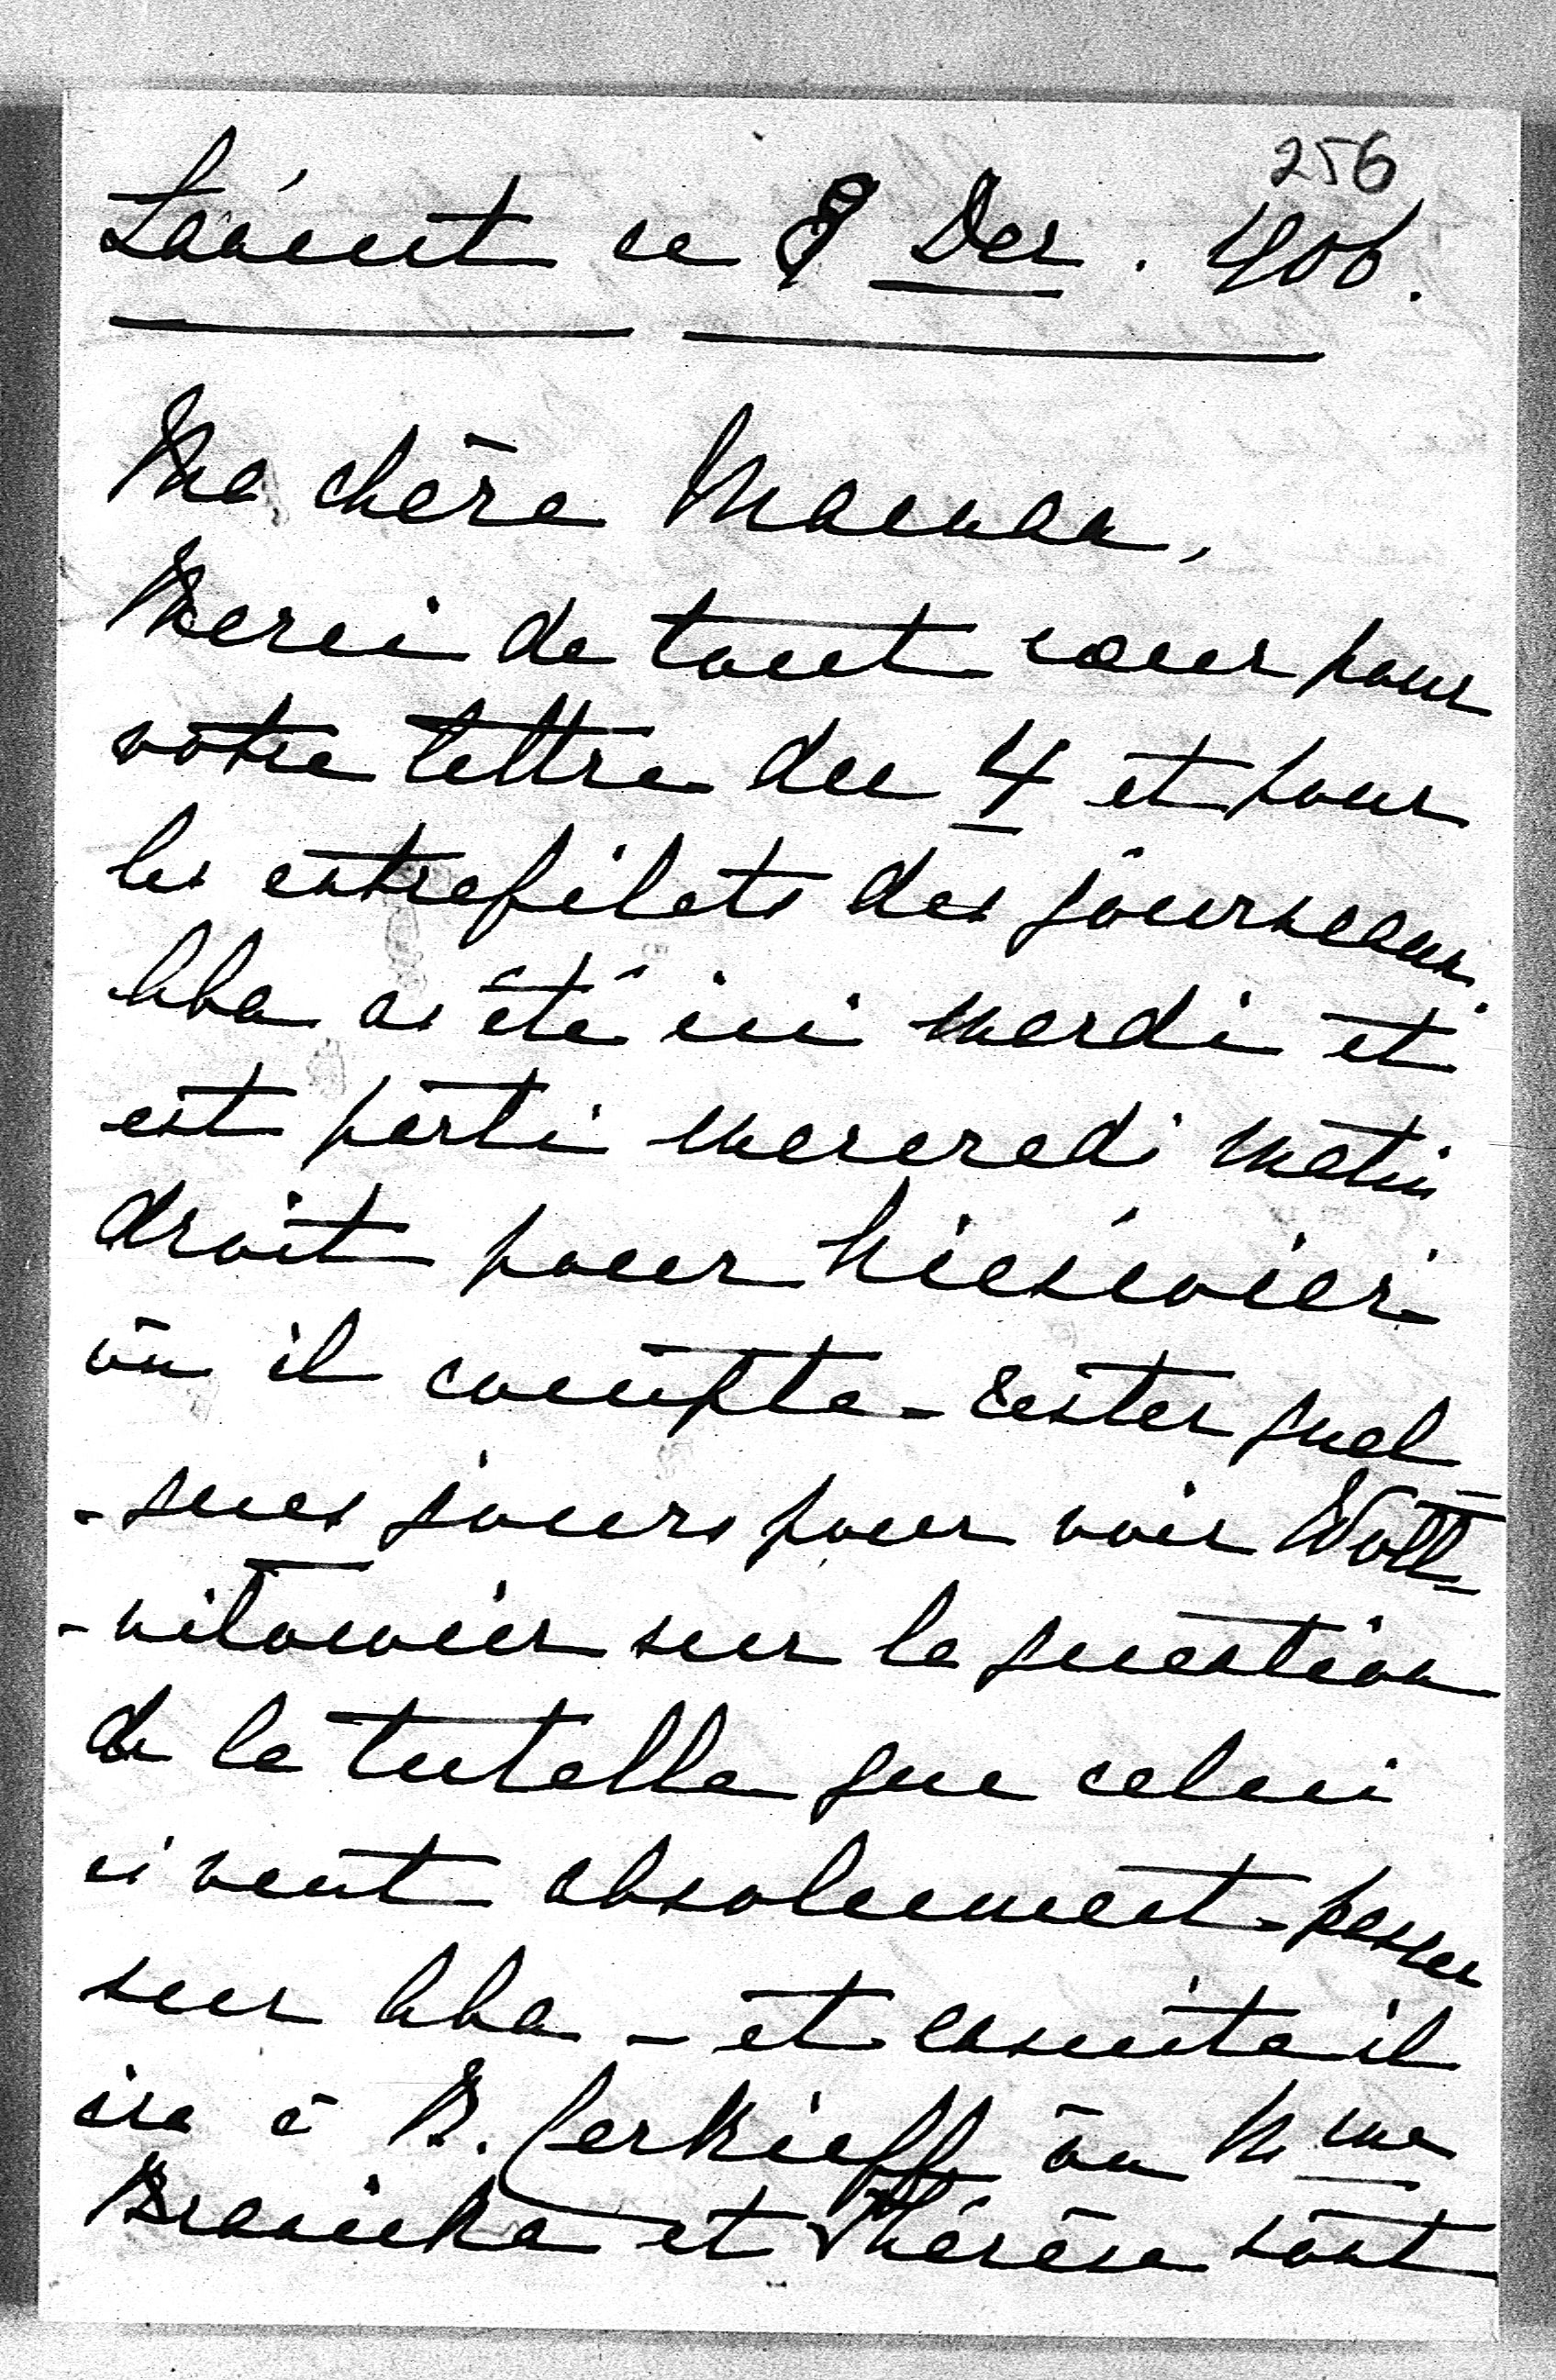 256
Łańcut ce 8 Dec. 1906.
Ma chère Maman,
Merci de tout cœur pour
votre lettre du 4 et pour
les entrefilets des journaux.
Aba a été ici mardi et
est parti mercredi matin
droit pour Nieśwież
où il compte rester quel
-ques jours pour voir Woll-
sur la question
de la tutelle que celui
ci veut absolument passer
sur Aba - et ensuite il
ira à B. Cerkieff où Mme
Branicka et Thérèse sont